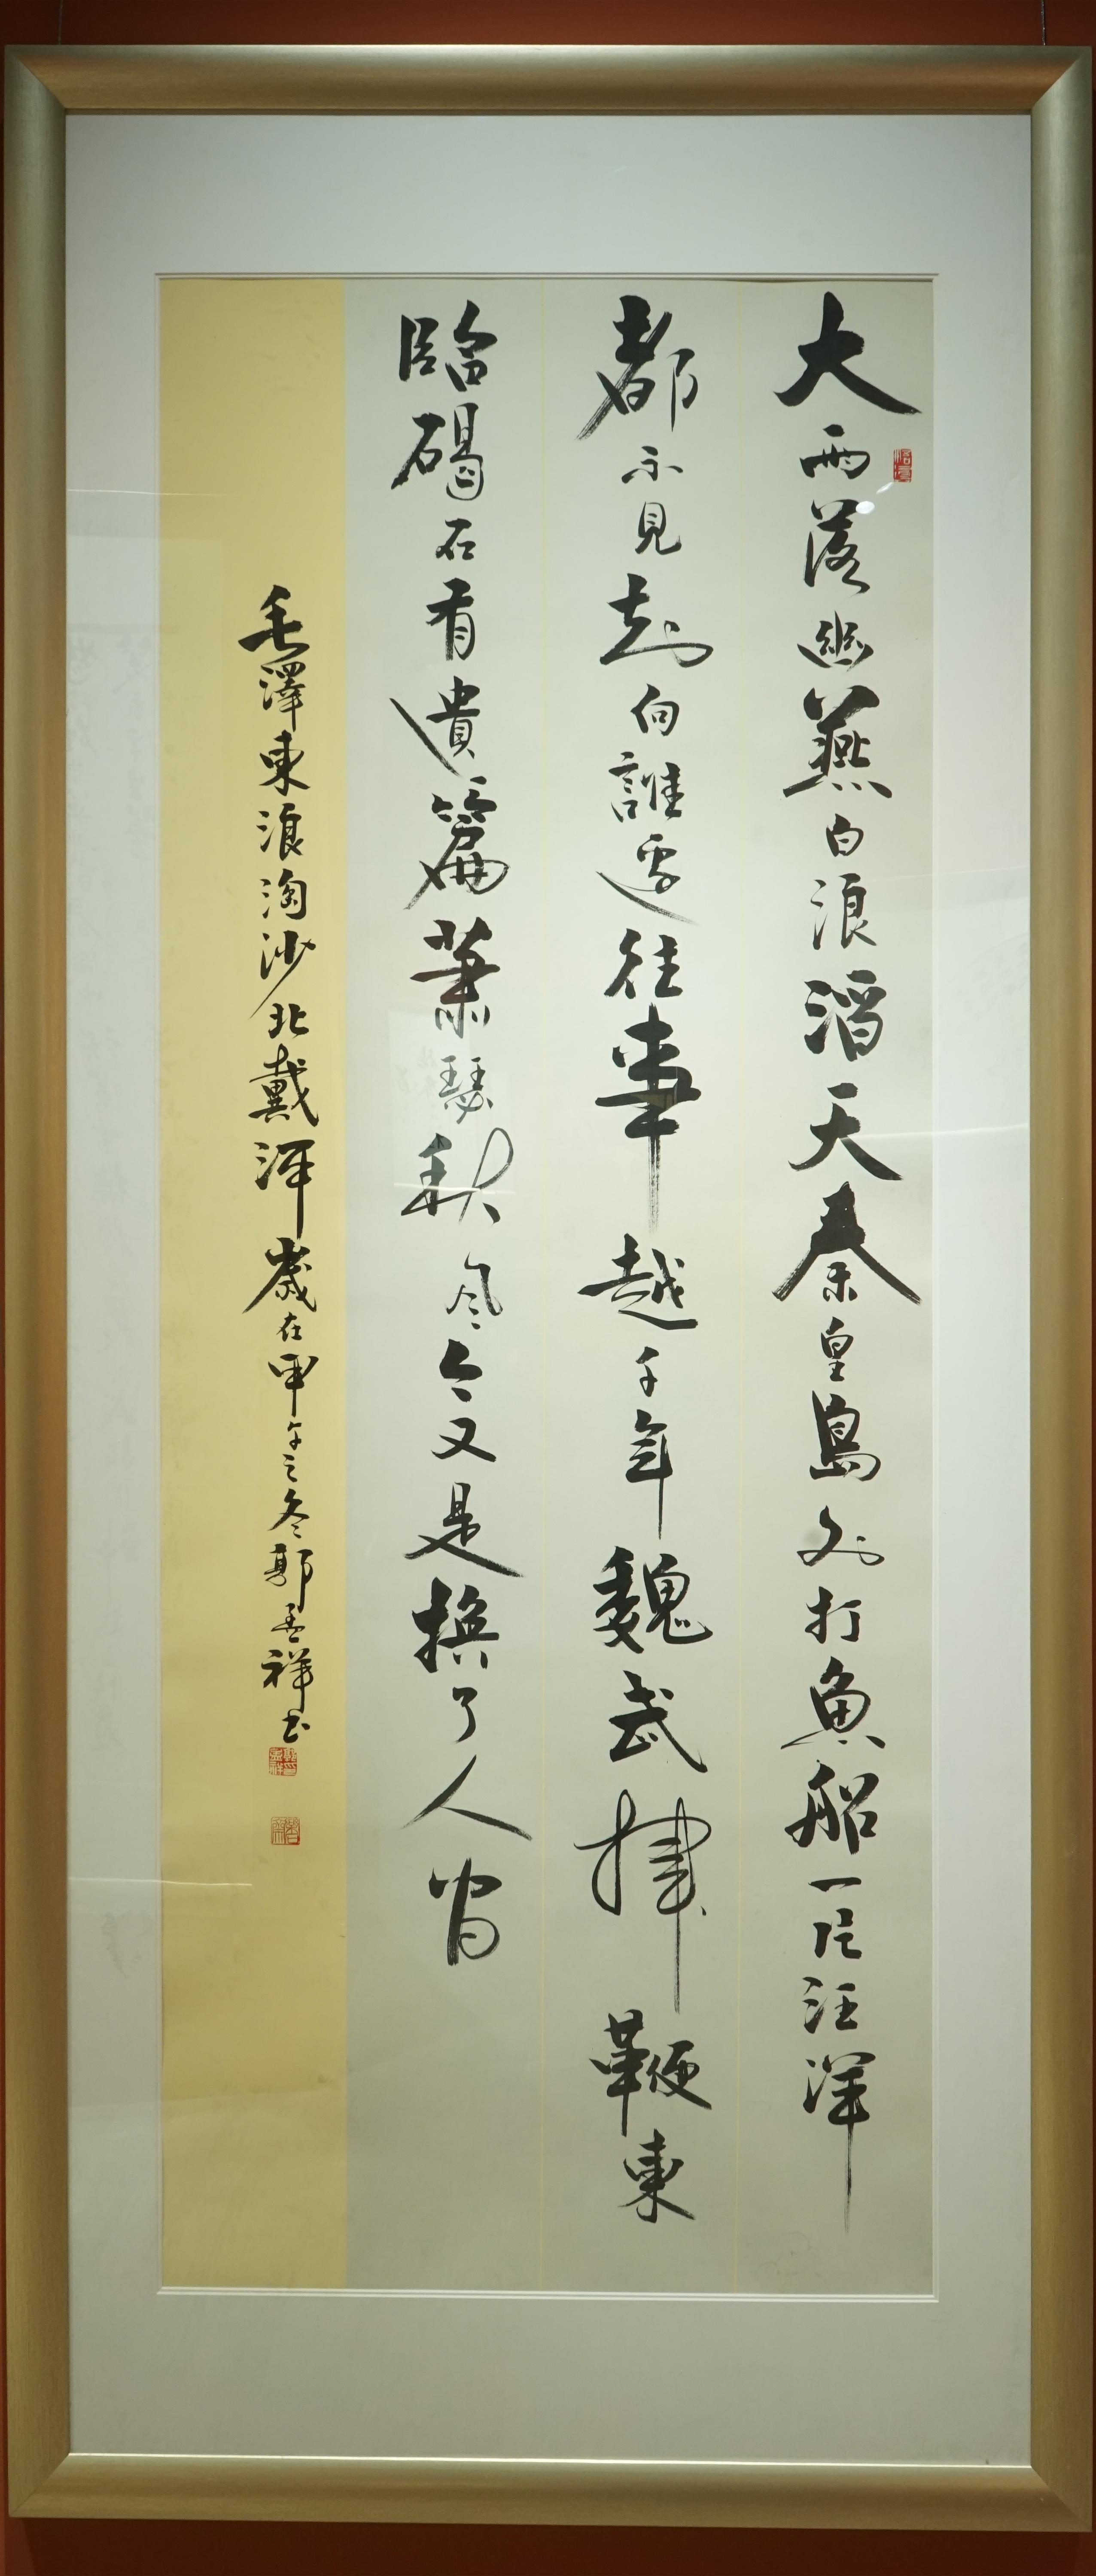 大雨落幽燕白浪滔天秦皇島外打魚船一片汪洋
都不見知向誰邊往事越千年魏武揮鞭東
臨碣石有遺篇蕭瑟秋風今又是換了人間
毛澤東浪淘沙北戴河歲在甲午之冬郭孟祥書